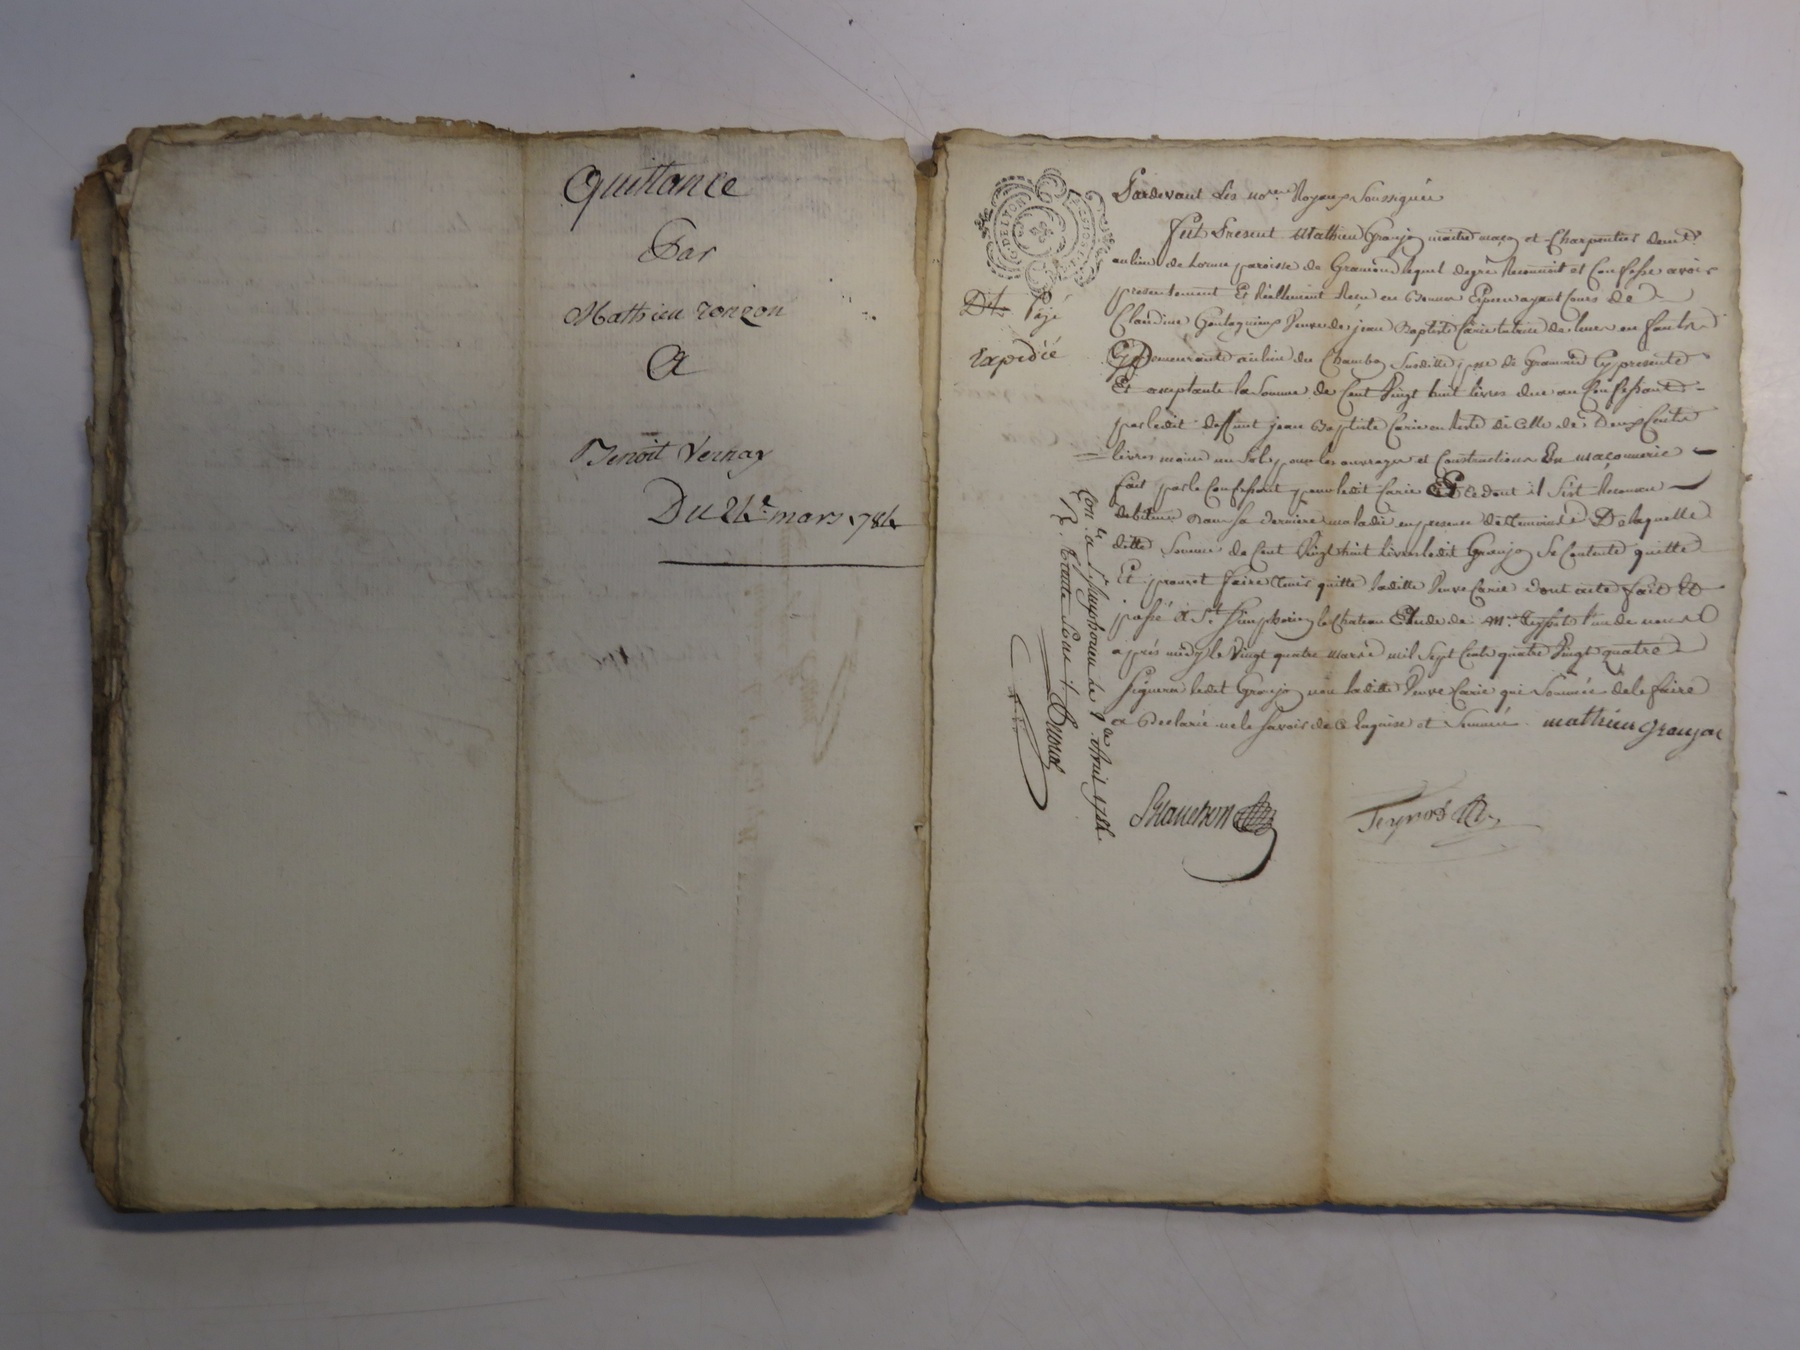 Quittance
Par
Mathieu ronzon
A
Benoit Vernay
Du 24e mars 1784
G. DE LYON
Dit Péjé
Expédié
Pardevant Les nores Royaux Soussignés
fut Present Mathieu Granjon maitre maçon et Charpentier demt
au lieu de paroisse de Gramond lequel de gré Reconnoit et Confesse avoir
presentement Et Réellement Receu en Bonnes Especes ayant Cours de
Claudine Veuve de jean Baptiste Carie tutrice de leurs enfants
Demeurante au lieu du Chambo Susditte psse de Gramond Cy presente
Et acceptante la Somme de Cent Vingt huit livres due au Confessant
par ledit deffunt jean Baptiste Carie en Reste de Celle de Deux Cents
livres moins un Sol pour les ouvrages et Constructions En maçonnerie
fait par le Confessant pour ledit Carie Et Ce dont il S'est Reconnu
debiteur Dans Sa derniere maladie en presence de temoins De laquelle
ditte Somme de Cent Vingt huit livres ledit Granjon Se Contente quitte
Et promet faire tenir quitte laditte Veuve Carie Dont acte fait Et
passé à St Simphorien le Chateau Etude de Me Teyssot l'un de nous
après midy le Vingt quatre mars mil Sept Cents quatre Vingt quatre
Signera ledit Granjon non laditte Veuve Carie qui Sommée de le faire
a Declaré ne le Savoir de Ce Enquise et Sommée mathieu Granjon
Conlé a St Simphorien le 1er Avril 1784
R. trente Sous